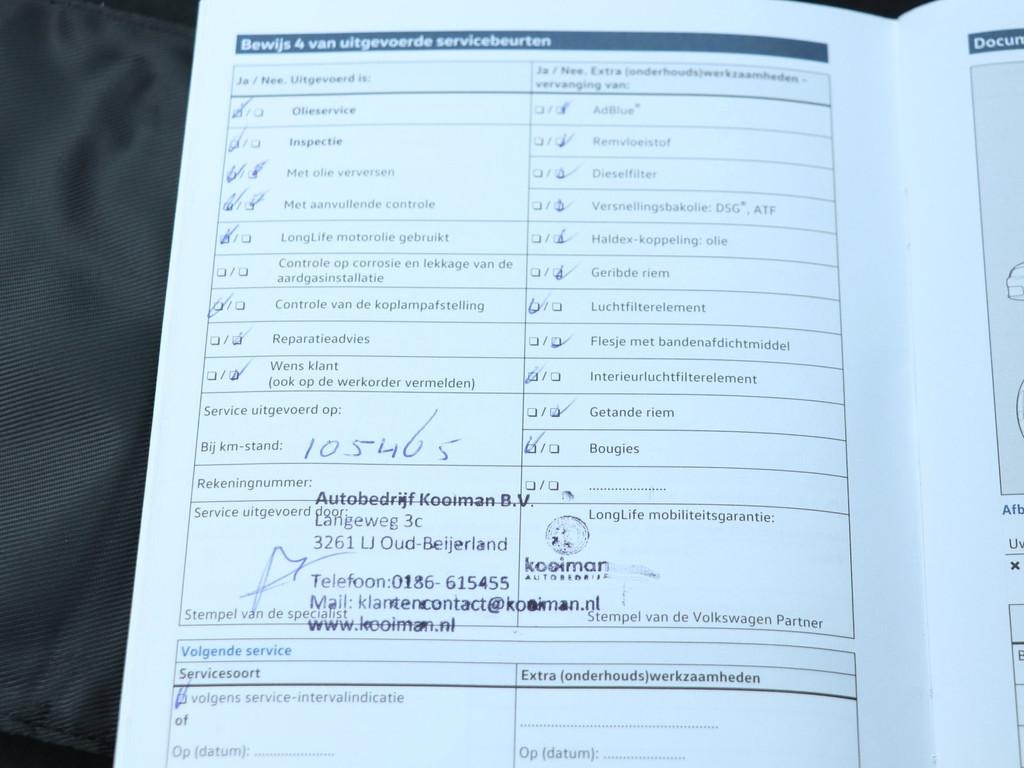 Bewijs 4 van uitgevoerde servicebeurten
Ja / Nee. Uitgevoerd is:
Olieservice
Inspectie
Met olie verversen
Met aanvullende controle
LongLife motorolie gebruikt
Controle op corrosie en lekkage van de
aardgasinstallatie
Controle van de koplampafstelling
Reparatieadvies
Wens klant
(ook op de werkorder vermelden)
Service uitgevoerd op:
Bij km-stand: 105465
Rekeningnummer:
Service uitgevoerd door:
Autobedrijf Kooiman B.V.
Langeweg 3c
3261 LJ Oud-Beijerland
Telefoon:0186- 615455
Mail: klantencontact@kooiman.nl
www.kooiman.nl
Stempel van de specialist
Ja / Nee. Extra (onderhouds)werkzaamheden -
vervanging van:
AdBlue®
Remvloeistof
Dieselfilter
Versnellingsbakolie: DSG®, ATF
Haldex-koppeling: olie
Geribde riem
Luchtfilterelement
Flesje met bandenafdichtmiddel
Interieurluchtfilterelement
Getande riem
Bougies
....................
LongLife mobiliteitsgarantie:
kooiman
AUTOBEDRIJF
Stempel van de Volkswagen Partner
Volgende service
Servicesoort
volgens service-intervalindicatie
of
Op (datum): ....................
Extra (onderhouds)werkzaamheden
..................................................
Op (datum): ....................
Docum
Afb
Uw